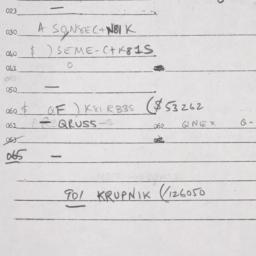 023 —
030 A SQNSEC+N81K
040 $ ) SEME-C+K81S
041 0
050 —
060 $ QF ) K81R33S ($53262
061 — QRUSS 060 QNEX Q-
063
065 —
901 KRUPNIK (/126050